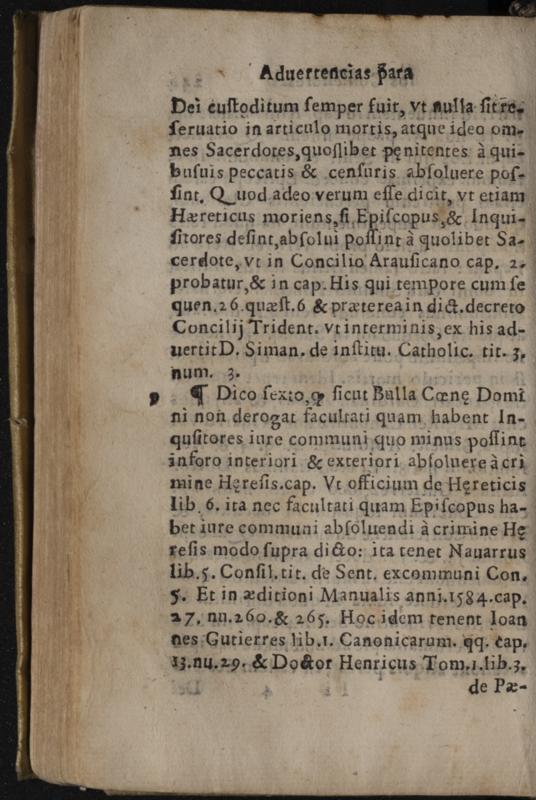 Aduertencias p̃ara
Dei custoditum semper fuit, vt nulla sit re-
seruatio in articulo mortis, atque ideo om-
nes Sacerdotes, quoslibet pęnitentes à qui-
busuis peccatis & censuris absoluere pos-
sint. Quod adeo verum esse dicit, vt etiam
Hæreticus moriens, si Episcopus, & Inqui-
sitores desint, absolui possint à quolibet Sa-
cerdote, vt in Concilio Arausicano cap. 2.
probatur, & in cap. His qui tempore cum se
quen. 26. quæst. 6 & præterea in dict. decreto
Concilij Trident. vt in terminis, ex his ad-
uertit D. Siman. de institu. Catholic. tit. 3.
num. 3.
9 ¶ Dico sexto, q̃ sicut Bulla Cœnę Domi
ni non derogat facultati quam habent In-
qusitores iure communi quo minus possint
inforo interiori & exteriori absoluere à cri
mine Hęresis. cap. Vt officium de Hęreticis
lib. 6. ita nec facultati quam Episcopus ha-
bet iure communi absoluendi à crimine Hę
resis modo supra dicto: ita tenet Nauarrus
lib. 5. Consil. tit. de Sent. excommuni Con.
5. Et in æditioni Manualis anni. 1584. cap.
27. nu. 260. & 265. Hoc idem tenent Ioan
nes Gutierres lib. 1. Canonicarum. qq. cap.
13. nu. 29. & Doctor Henricus Tom. 1. lib. 3.
de Pæ-